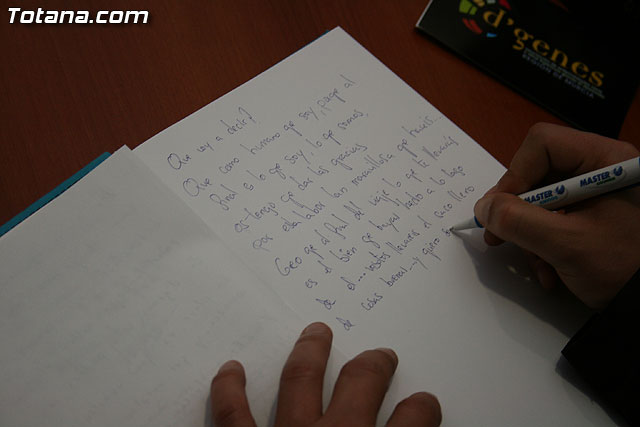 Totana.com
d'genes
MASTER
MASTER
Que voy a decir?
Que como humano que soy, porque al
final es lo que soy, lo que pienso,
es tengo que dar las gracias
por esta labor tan maravillosa que hacéis...
Creo que al final del viaje lo que te llevarás
es el bien que hayas hecho a lo largo
de el... vosotros llevareis el saco lleno
de cosas buenas... y quiero